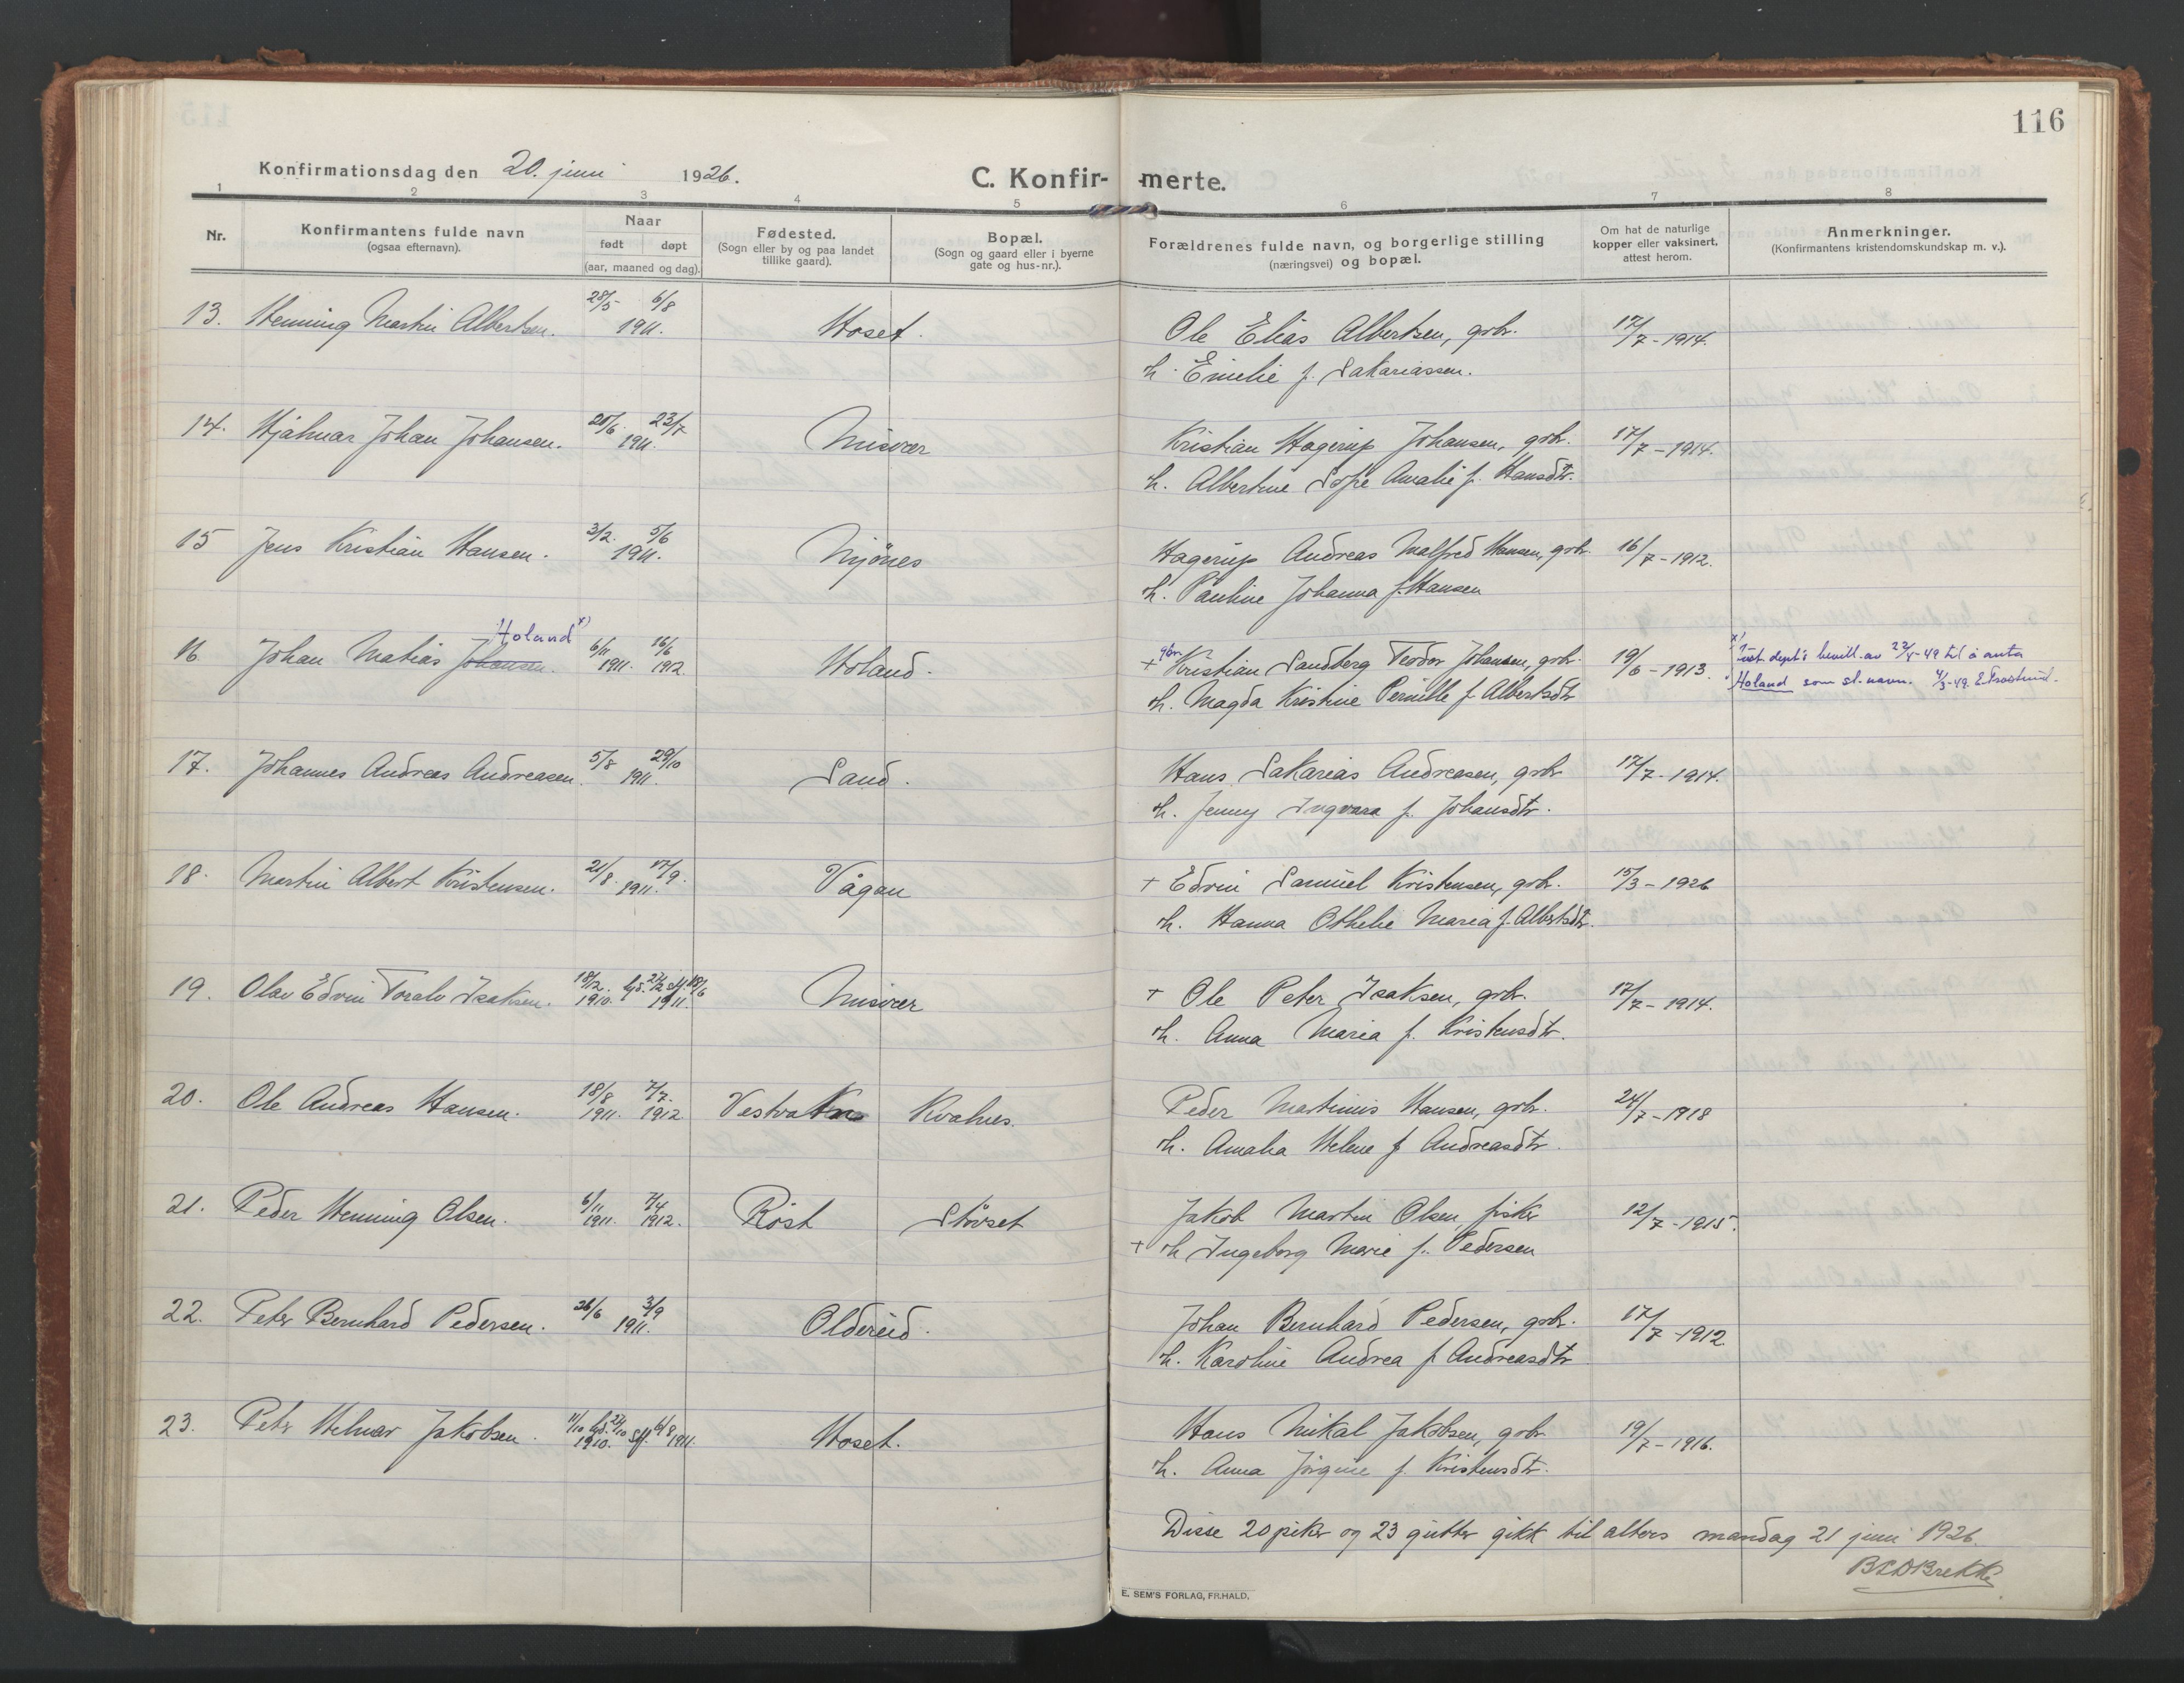 116
Konfirmationsdag den 20. juni 1926.
C. Konfir- -merte.
1 2 3 4 5 6 7 8
Nr.
Konfirmantens fulde navn
(ogsaa efternavn).
Naar
født døpt
(aar, maaned og dag).
Fødested.
(Sogn eller by og paa landet
tillike gaard).
Bopæl.
(Sogn og gaard eller i byerne
gate og hus-nr.).
Forældrenes fulde navn, og borgerlige stilling
(næringsvei) og bopæl.
Om hat de naturlige
kopper eller vaksinert,
attest herom.
Anmerkninger.
(Konfirmantens kristendomskundskap m. v.).
13. Henning Martin Albertsen. 28/5 6/8 1911. Hoset. Ole Elias Albertsen, grbr. 17/7-1914.
h. Emelie f. Sakariassen.
14. Hjalmar Johan Johansen. 20/6. 23/7 1911. Misvær Kristian Hagerup Johansen, grbr. 17/7-1914.
h. Albertine Sofie Amalie f. Hansdtr.
15 Jens Kristian Hansen. 3/2. 5/6 1911. Mjönes Hagerup Andreas Malfred Hansen, grbr. 16/7-1912.
h. Pauline Johanna f. Hansen
Holand x)
16. Johan Matias Johansen. 6/11 1911. 16/6 1912. Holand. + gbr. Kristian Sandberg Teodor Johansen, grbr. 19/6-1913. x) Just. dept's bevill. av 22/4-49 til å anta
h. Magda Kristine Pernille f. Albertsdtr Holand som sl.navn.
17. Johannes Andreas Andreasen. 5/8 29/10 1911. Sand. Hans Sakarias Andreasen, grbr 17/7-1914.
h. Jenny Ingvara f. Johansdtr.
18. Martin Albert Kristensen. 21/8. 17/9. 1911. Vågan + Edvin Samuel Kristensen, grbr. 15/3-1926
h. Hanna Othelie Maria f. Albertsdtr.
19. Olav Edvin Toralv Isaksen. 18/12. 1910. hjd. 27/2 stf. 18/6 1911. Misvær + Ole Peter Isaksen, grbr. 17/7-1914.
h. Anna Maria f. Kristensdtr.
20. Ole Andreas Hansen. 18/8 1911. 7/7. 1912 Vestvatn Kvalnes. Peder Martinus Hansen, grbr. 24/7-1918
h. Amalia Helene f Andreasdtr.
21. Peder Henning Olsen. 6/11 1911. 7/4 1912. Röst Störset Jakob Martin Olsen, fisker 12/7-1915.
+ h Ingeborg Marie f. Pedersen
22. Peter Bernhard Pedersen. 26/6 3/9 1911. Oldereid. Johan Bernhard Pedersen, grbr. 17/7-1912.
h. Karoline Andrea f Andreasdtr
23. Peter Helmar Jakobsen. 11/10 1910. hjd. 27/10 stf. 6/8 1911. Hoset. Hans Mikal Jakobsen, grbr 19/7-1916.
h. Anna Jörgine f. Kristensdtr.
Disse 20 piker og 23 gutter gikk til alters mandag 21 juni 1926.
Brekke
E. SEM'S FORLAG, FR.HALD.